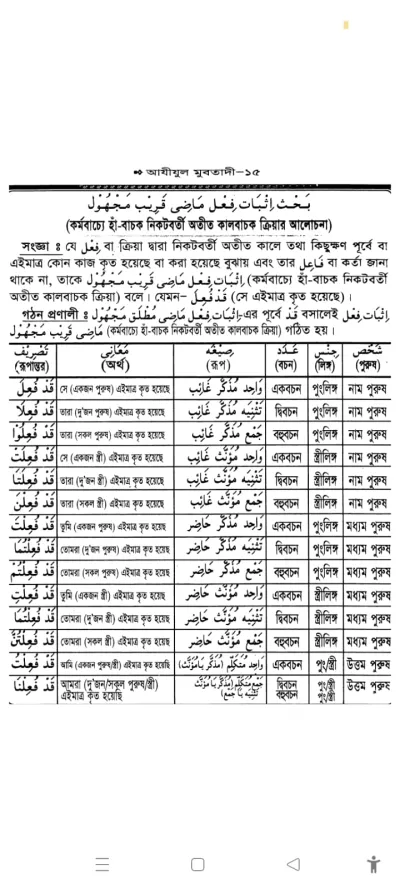 ➻ আযীযুল মুবতাদী–১৫
بَحْث اِثْبَات فِعْل مَاضِى قَرِيْب مَجْهُوْل
(কর্মবাচ্যে হাঁ-বাচক নিকটবর্তী অতীত কালবাচক ক্রিয়ার আলোচনা)
সংজ্ঞা ঃ যে فِعْل বা ক্রিয়া দ্বারা নিকটবর্তী অতীত কালে তথা কিছুক্ষণ পূর্বে বা
এইমাত্র কোন কাজ কৃত হয়েছে বা করা হয়েছে বুঝায় এবং তার فَاعِل বা কর্তা জানা
থাকে না, তাকে اِثْبَات فِعْل مَاضِى قَرِيْب مَجْهُوْل (কর্মবাচ্যে হাঁ-বাচক নিকটবর্তী
অতীত কালবাচক ক্রিয়া) বলে। যেমন– قَدْ فُعِلَ (সে এইমাত্র কৃত হয়েছে)।
গঠন প্রণালী ঃ اِثْبَات فِعْل مَاضِى مُطْلَق مَجْهُوْل-এর পূর্বে قَدْ বসালেই اِثْبَات فِعْل
مَاضِى قَرِيْب مَجْهُوْل (কর্মবাচ্যে হাঁ-বাচক নিকটবর্তী অতীত কালবাচক ক্রিয়া) গঠিত হয়।
تَصْرِيْف (রূপান্তর) مَعَانِى (অর্থ) صِيْغَه (রূপ) عَدَد (বচন) جِنْس (লিঙ্গ) شَخْص (পুরুষ)
قَدْ فُعِلَ সে (একজন পুরুষ) এইমাত্র কৃত হয়েছে وَاحِد مُذَكَّر غَائِب একবচন পুংলিঙ্গ নাম পুরুষ
قَدْ فُعِلَا তারা (দু'জন পুরুষ) এইমাত্র কৃত হয়েছে تَثْنِيَه مُذَكَّر غَائِب দ্বিবচন পুংলিঙ্গ নাম পুরুষ
قَدْ فُعِلُوْا তারা (সকল পুরুষ) এইমাত্র কৃত হয়েছে جَمْع مُذَكَّر غَائِب বহুবচন পুংলিঙ্গ নাম পুরুষ
قَدْ فُعِلَتْ সে (একজন স্ত্রী) এইমাত্র কৃত হয়েছে وَاحِد مُؤَنَّث غَائِب একবচন স্ত্রীলিঙ্গ নাম পুরুষ
قَدْ فُعِلَتَا তারা (দু'জন স্ত্রী) এইমাত্র কৃত হয়েছে تَثْنِيَه مُؤَنَّث غَائِب দ্বিবচন স্ত্রীলিঙ্গ নাম পুরুষ
قَدْ فُعِلْنَ তারা (সকল স্ত্রী) এইমাত্র কৃত হয়েছে جَمْع مُؤَنَّث غَائِب বহুবচন স্ত্রীলিঙ্গ নাম পুরুষ
قَدْ فُعِلْتَ তুমি (একজন পুরুষ) এইমাত্র কৃত হয়েছ وَاحِد مُذَكَّر حَاضِر একবচন পুংলিঙ্গ মধ্যম পুরুষ
قَدْ فُعِلْتُمَا তোমরা (দু'জন পুরুষ) এইমাত্র কৃত হয়েছ تَثْنِيَه مُذَكَّر حَاضِر দ্বিবচন পুংলিঙ্গ মধ্যম পুরুষ
قَدْ فُعِلْتُمْ তোমরা (সকল পুরুষ) এইমাত্র কৃত হয়েছ جَمْع مُذَكَّر حَاضِر বহুবচন পুংলিঙ্গ মধ্যম পুরুষ
قَدْ فُعِلْتِ তুমি (একজন স্ত্রী) এইমাত্র কৃত হয়েছ وَاحِد مُؤَنَّث حَاضِر একবচন স্ত্রীলিঙ্গ মধ্যম পুরুষ
قَدْ فُعِلْتُمَا তোমরা (দু'জন স্ত্রী) এইমাত্র কৃত হয়েছ تَثْنِيَه مُؤَنَّث حَاضِر দ্বিবচন স্ত্রীলিঙ্গ মধ্যম পুরুষ
قَدْ فُعِلْتُنَّ তোমরা (সকল স্ত্রী) এইমাত্র কৃত হয়েছ جَمْع مُؤَنَّث حَاضِر বহুবচন স্ত্রীলিঙ্গ মধ্যম পুরুষ
قَدْ فُعِلْتُ আমি (একজন পুরুষ/স্ত্রী) এইমাত্র কৃত হয়েছি وَاحِد مُتَكَلِّم (مُذَكَّر يَا مُؤَنَّث) একবচন পুং/স্ত্রী উত্তম পুরুষ
قَدْ فُعِلْنَا আমরা (দু'জন/সকল পুরুষ/স্ত্রী) এইমাত্র কৃত হয়েছি جَمْع مُتَكَلِّم (مُذَكَّر يَا مُؤَنَّث تَثْنِيَه يَا جَمْع) দ্বিবচন বহুবচন পুং/স্ত্রী পুং/স্ত্রী উত্তম পুরুষ